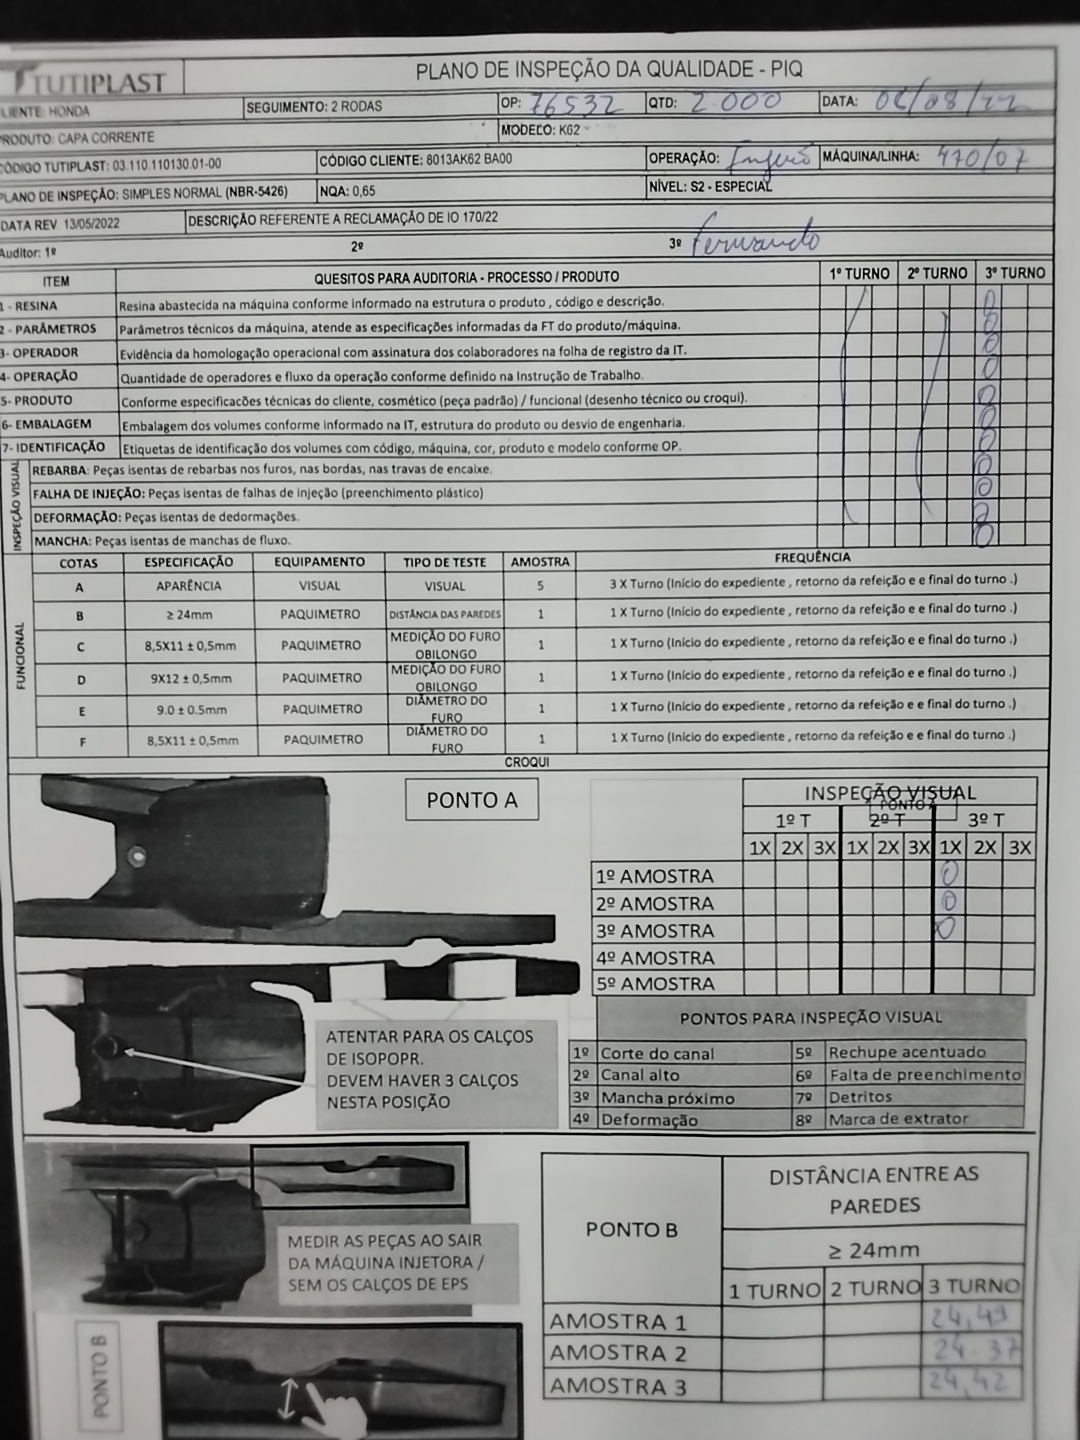 TUTIPLAST
PLANO DE INSPEÇÃO DA QUALIDADE - PIQ
LIENTE: HONDA SEGUIMENTO: 2 RODAS OP: 76532 QTD: 2.000 DATA: 06/08/22
PRODUTO: CAPA CORRENTE MODELO: K62
CÓDIGO TUTIPLAST: 03.110.110130.01-00 CÓDIGO CLIENTE: 8013AK62 BA00 OPERAÇÃO: MÁQUINA/LINHA: 470/07
PLANO DE INSPEÇÃO: SIMPLES NORMAL (NBR-5426) NQA: 0,65 NÍVEL: S2 - ESPECIAL
DATA REV 13/05/2022 DESCRIÇÃO REFERENTE A RECLAMAÇÃO DE IO 170/22
Auditor: 1º 2º 3º Fernando
ITEM QUESITOS PARA AUDITORIA - PROCESSO / PRODUTO 1º TURNO 2º TURNO 3º TURNO
1 - RESINA Resina abastecida na máquina conforme informado na estrutura o produto , código e descrição. 0
2 - PARÂMETROS Parâmetros técnicos da máquina, atende as especificações informadas da FT do produto/máquina. 0
3- OPERADOR Evidência da homologação operacional com assinatura dos colaboradores na folha de registro da IT. 0
4- OPERAÇÃO Quantidade de operadores e fluxo da operação conforme definido na Instrução de Trabalho. 0
5- PRODUTO Conforme especificacões técnicas do cliente, cosmético (peça padrão) / funcional (desenho técnico ou croqui). 0
6- EMBALAGEM Embalagem dos volumes conforme informado na IT, estrutura do produto ou desvio de engenharia. 0
7- IDENTIFICAÇÃO Etiquetas de identificação dos volumes com código, máquina, cor, produto e modelo conforme OP. 0
INSPEÇÃO VISUAL
REBARBA: Peças isentas de rebarbas nos furos, nas bordas, nas travas de encaixe. 0
FALHA DE INJEÇÃO: Peças isentas de falhas de injeção (preenchimento plástico) 0
DEFORMAÇÃO: Peças isentas de dedormações.
MANCHA: Peças isentas de manchas de fluxo. 0
FUNCIONAL
COTAS ESPECIFICAÇÃO EQUIPAMENTO TIPO DE TESTE AMOSTRA FREQUÊNCIA
A APARÊNCIA VISUAL VISUAL 5 3 X Turno (Início do expediente , retorno da refeição e e final do turno .)
B ≥ 24mm PAQUIMETRO DISTÂNCIA DAS PAREDES 1 1 X Turno (Início do expediente , retorno da refeição e e final do turno .)
C 8,5X11 ± 0,5mm PAQUIMETRO MEDIÇÃO DO FURO OBILONGO 1 1 X Turno (Início do expediente , retorno da refeição e e final do turno .)
D 9X12 ± 0,5mm PAQUIMETRO MEDIÇÃO DO FURO OBILONGO 1 1 X Turno (Início do expediente , retorno da refeição e e final do turno .)
E 9.0 ± 0.5mm PAQUIMETRO DIÂMETRO DO FURO 1 1 X Turno (Início do expediente , retorno da refeição e e final do turno .)
F 8,5X11 ± 0,5mm PAQUIMETRO DIÂMETRO DO FURO 1 1 X Turno (Início do expediente , retorno da refeição e e final do turno .)
CROQUI
PONTO A
INSPEÇÃO VISUAL
PONTO A
1º T 2º T 3º T
1X 2X 3X 1X 2X 3X 1X 2X 3X
1º AMOSTRA 0
2º AMOSTRA 0
3º AMOSTRA 0
4º AMOSTRA
5º AMOSTRA
ATENTAR PARA OS CALÇOS
DE ISOPOPR.
DEVEM HAVER 3 CALÇOS
NESTA POSIÇÃO
PONTOS PARA INSPEÇÃO VISUAL
1º Corte do canal 5º Rechupe acentuado
2º Canal alto 6º Falta de preenchimento
3º Mancha próximo 7º Detritos
4º Deformação 8º Marca de extrator
MEDIR AS PEÇAS AO SAIR
DA MÁQUINA INJETORA /
SEM OS CALÇOS DE EPS
PONTO B
PONTO B
DISTÂNCIA ENTRE AS
PAREDES
≥ 24mm
1 TURNO 2 TURNO 3 TURNO
AMOSTRA 1 24,49
AMOSTRA 2 24.37
AMOSTRA 3 24,42